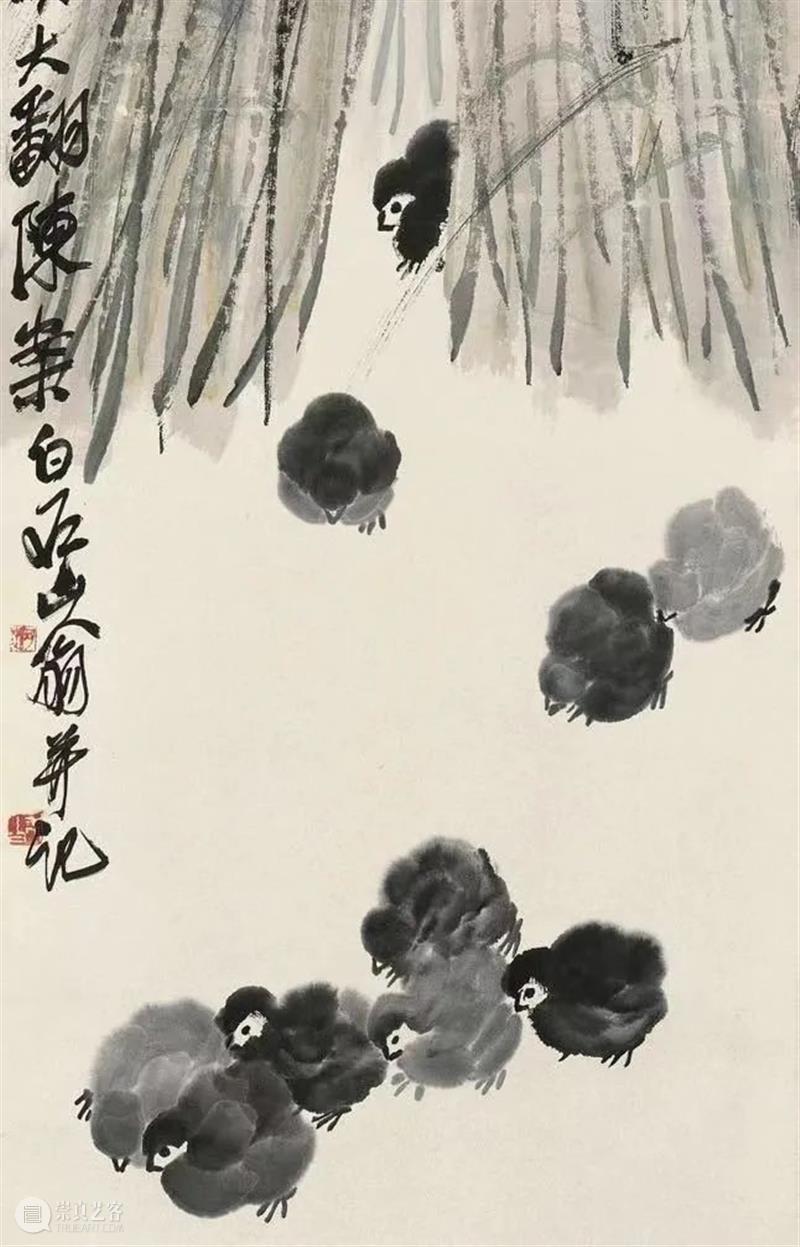 大翻陳案白石山翁并記
崇真艺客
TRUEART.COM